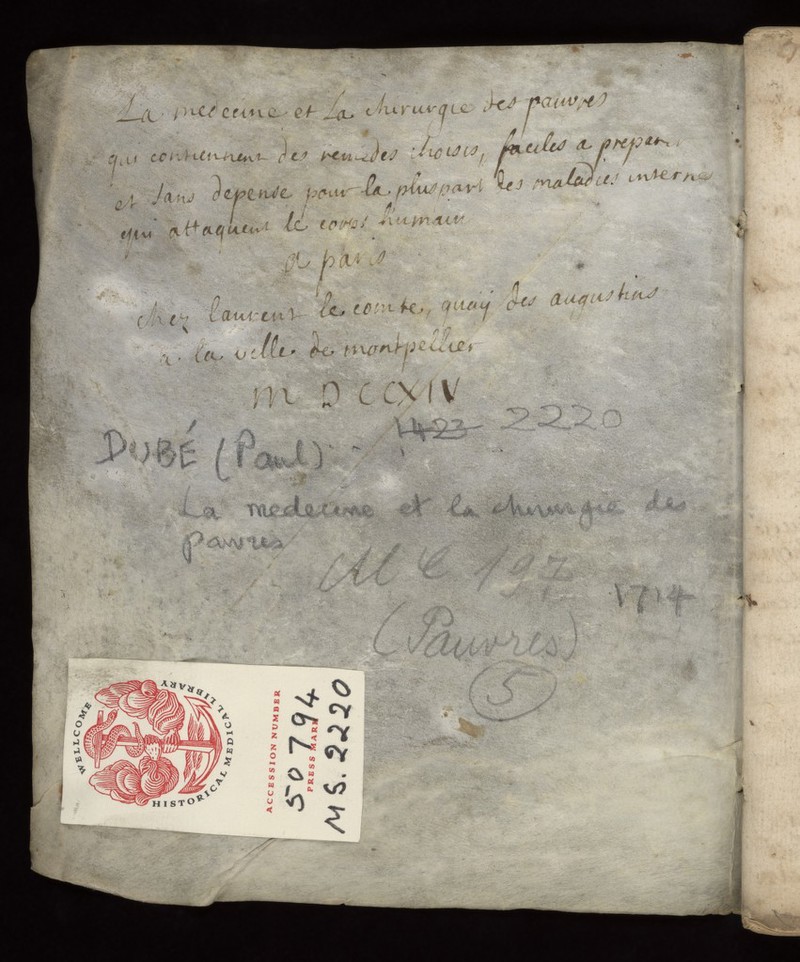 La medecine et La chirurgie des pauvres
qui contiennent des remedes choisis, faciles a preparer
et sans depense pour la pluspart des maladies internes
qui attaquent le corps humain
a paris
chez laurent le comte, quaÿ des augustins
a la ville de montpellier
M D CCXIV
1423 2220
DUBÉ (Paul)
La medecine et la chirurgie des
pauvres
197
1714
(Pauvres)
5
WELLCOME HISTORICAL MEDICAL LIBRARY
ACCESSION NUMBER
50794
PRESS MARK
MS. 2220